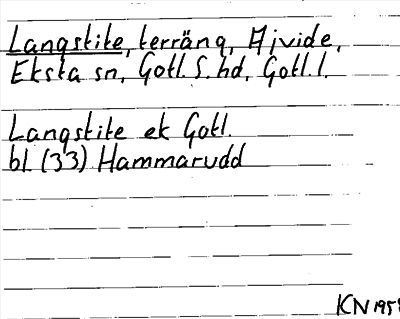 Langstite, terräng, Ajvide,
Eksta sn, Gotl. S. hd, Gotl. l.
Langstite ek Gotl.
bl. (33) Hammarudd
KN 1958